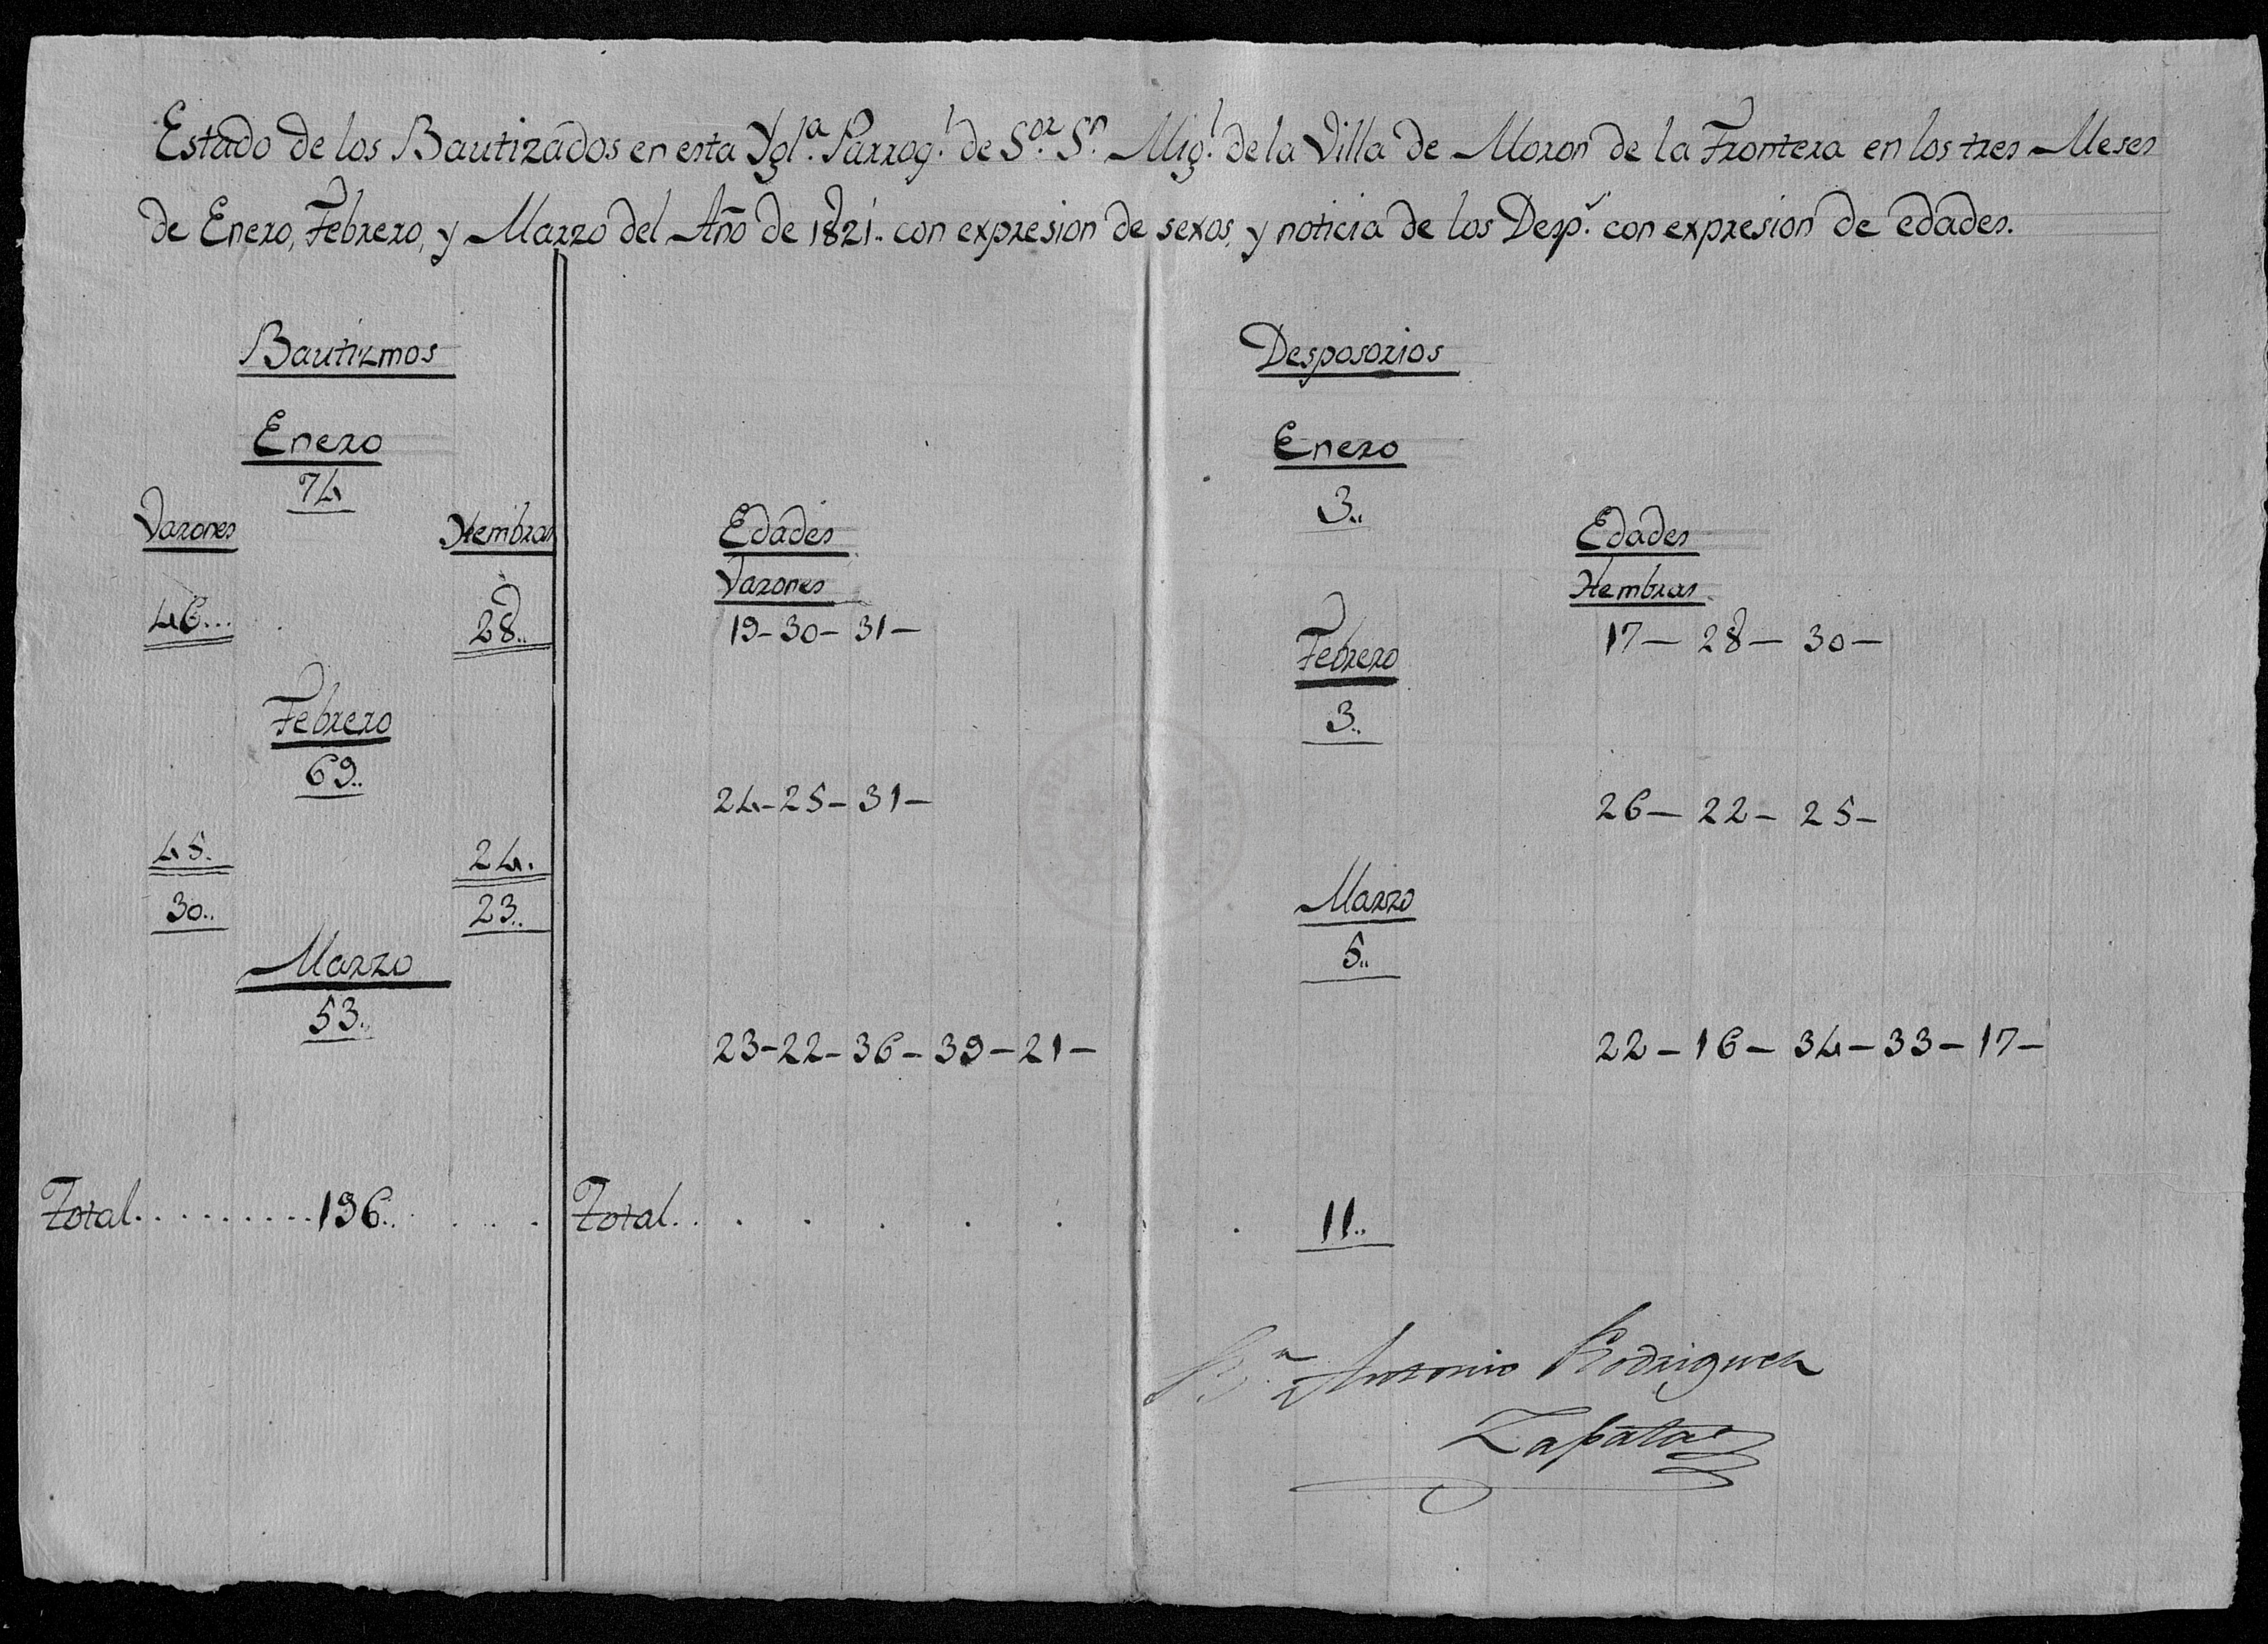 Estado de los Bautizados en esta Ygl.ª Parroq.l de S.or S.n Mig.l de la Villa de Moron de la Frontera en los tres Meses
de Enero, Febrero, y Marzo del Año de 1821.. con expresion de sexos, y noticia de los Desp.s con expresion de edades.
Bautizmos
Desposorios
Enero
74
Enero
3..
Varones
Hembras
Edades
Varones
Edades
Hembras
46...
28..
19-30-31-
17- 28- 30-
Febrero
69..
Febrero
3..
24-25-31-
26- 22- 25-
45.
24.
30..
23..
Marzo
53..
Marzo
5..
23-22-36-39-21-
22-16-34-33-17-
Total..........196.. . . .
Total.. . . . . . . 11..
B.n Antonio Rodriguez
Zapata